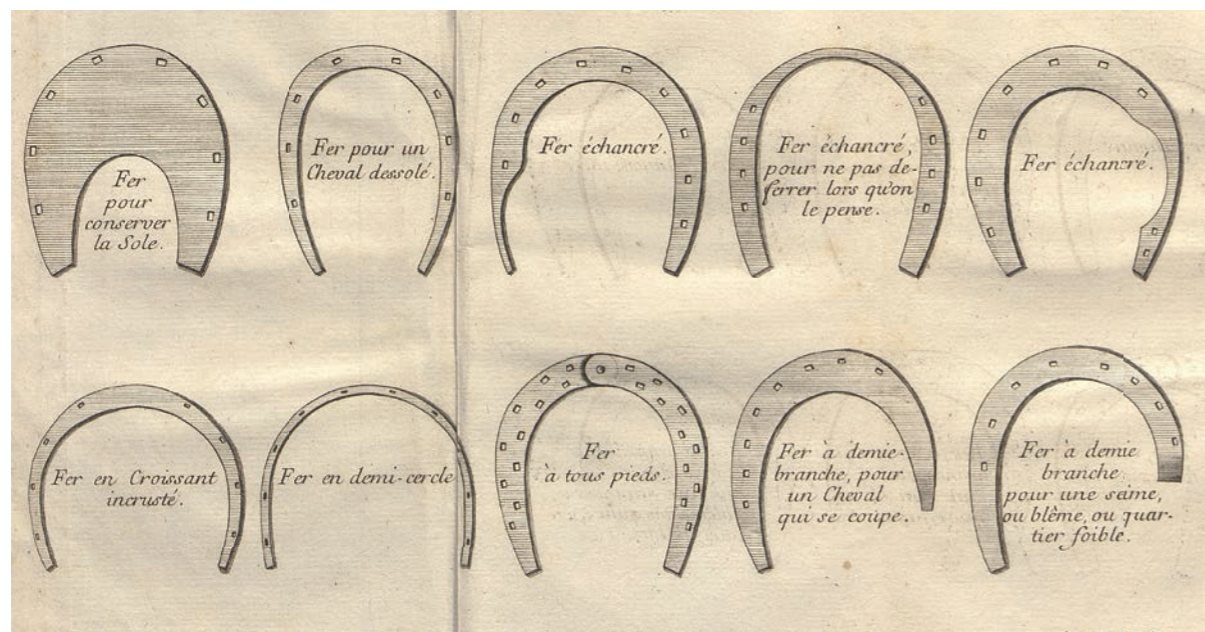 Fer
pour
conserver
la Sole.
Fer pour un
Cheval dessolé.
Fer échancré.
Fer échancré,
pour ne pas de-
ferrer lors qu'on
le pense.
Fer échancré.
Fer en Croissant
incrusté.
Fer en demi-cercle
Fer
à tous pieds.
Fer à demie-
branche, pour
un Cheval
qui se coupe.
Fer à demie
branche,
pour une seime,
ou blême, ou quar-
tier foible.